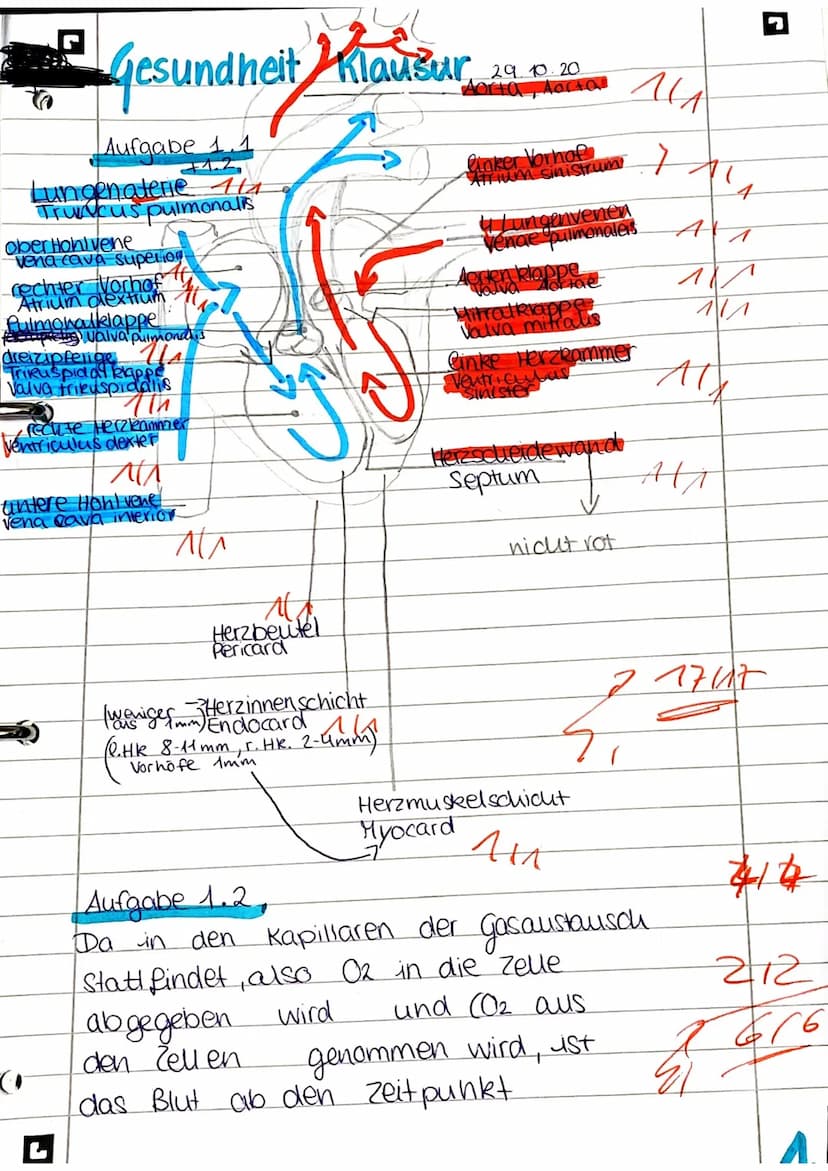 Gesundheit Klausur 29.10.20
Aorta, Aorta 1/1
Aufgabe 1.1
+1.2
Lungenaterie 1/1
Truncus pulmonalis
ober Hohlvene
vena cava superior
1/1
rechter Vorhof
Atrium dextrum
1/1
Pulmonalklappe
valva pulmonalis
1/1
dreizipfelige
Trikuspidalklappe
Valva trikuspidalis
1/1
rechte Herzkammer
Ventriculus dexter
1/1
untere Hohlvene
vena cava inferior
1/1
linker Vorhof
Atrium sinistrum
1/1
4 Lungenvenen
Venae pulmonaleis
1/1
Aortenklappe
Valva aortae
1/1
Mitralklappe
Valva mitralis
1/1
linke Herzkammer
Ventriculus
sinister
1/1
Herzscheidewand
Septum
1/1
nicht rot
1/1
Herzbeutel
Pericard
17/17
(weniger → Herzinnenschicht
als 1mm) Endocard 1/1
(l.HK 8-11mm, r. HK. 2-4mm)
Vorhöfe 1mm
Herzmuskelschicht
Myocard
1/1
Aufgabe 1.2
Da in den Kapillaren der Gasaustausch
stattfindet, also O2 in die Zelle
abgegeben wird und CO2 aus
den Zellen genommen wird, ist
das Blut ab den Zeitpunkt
2/2
6/6
1.